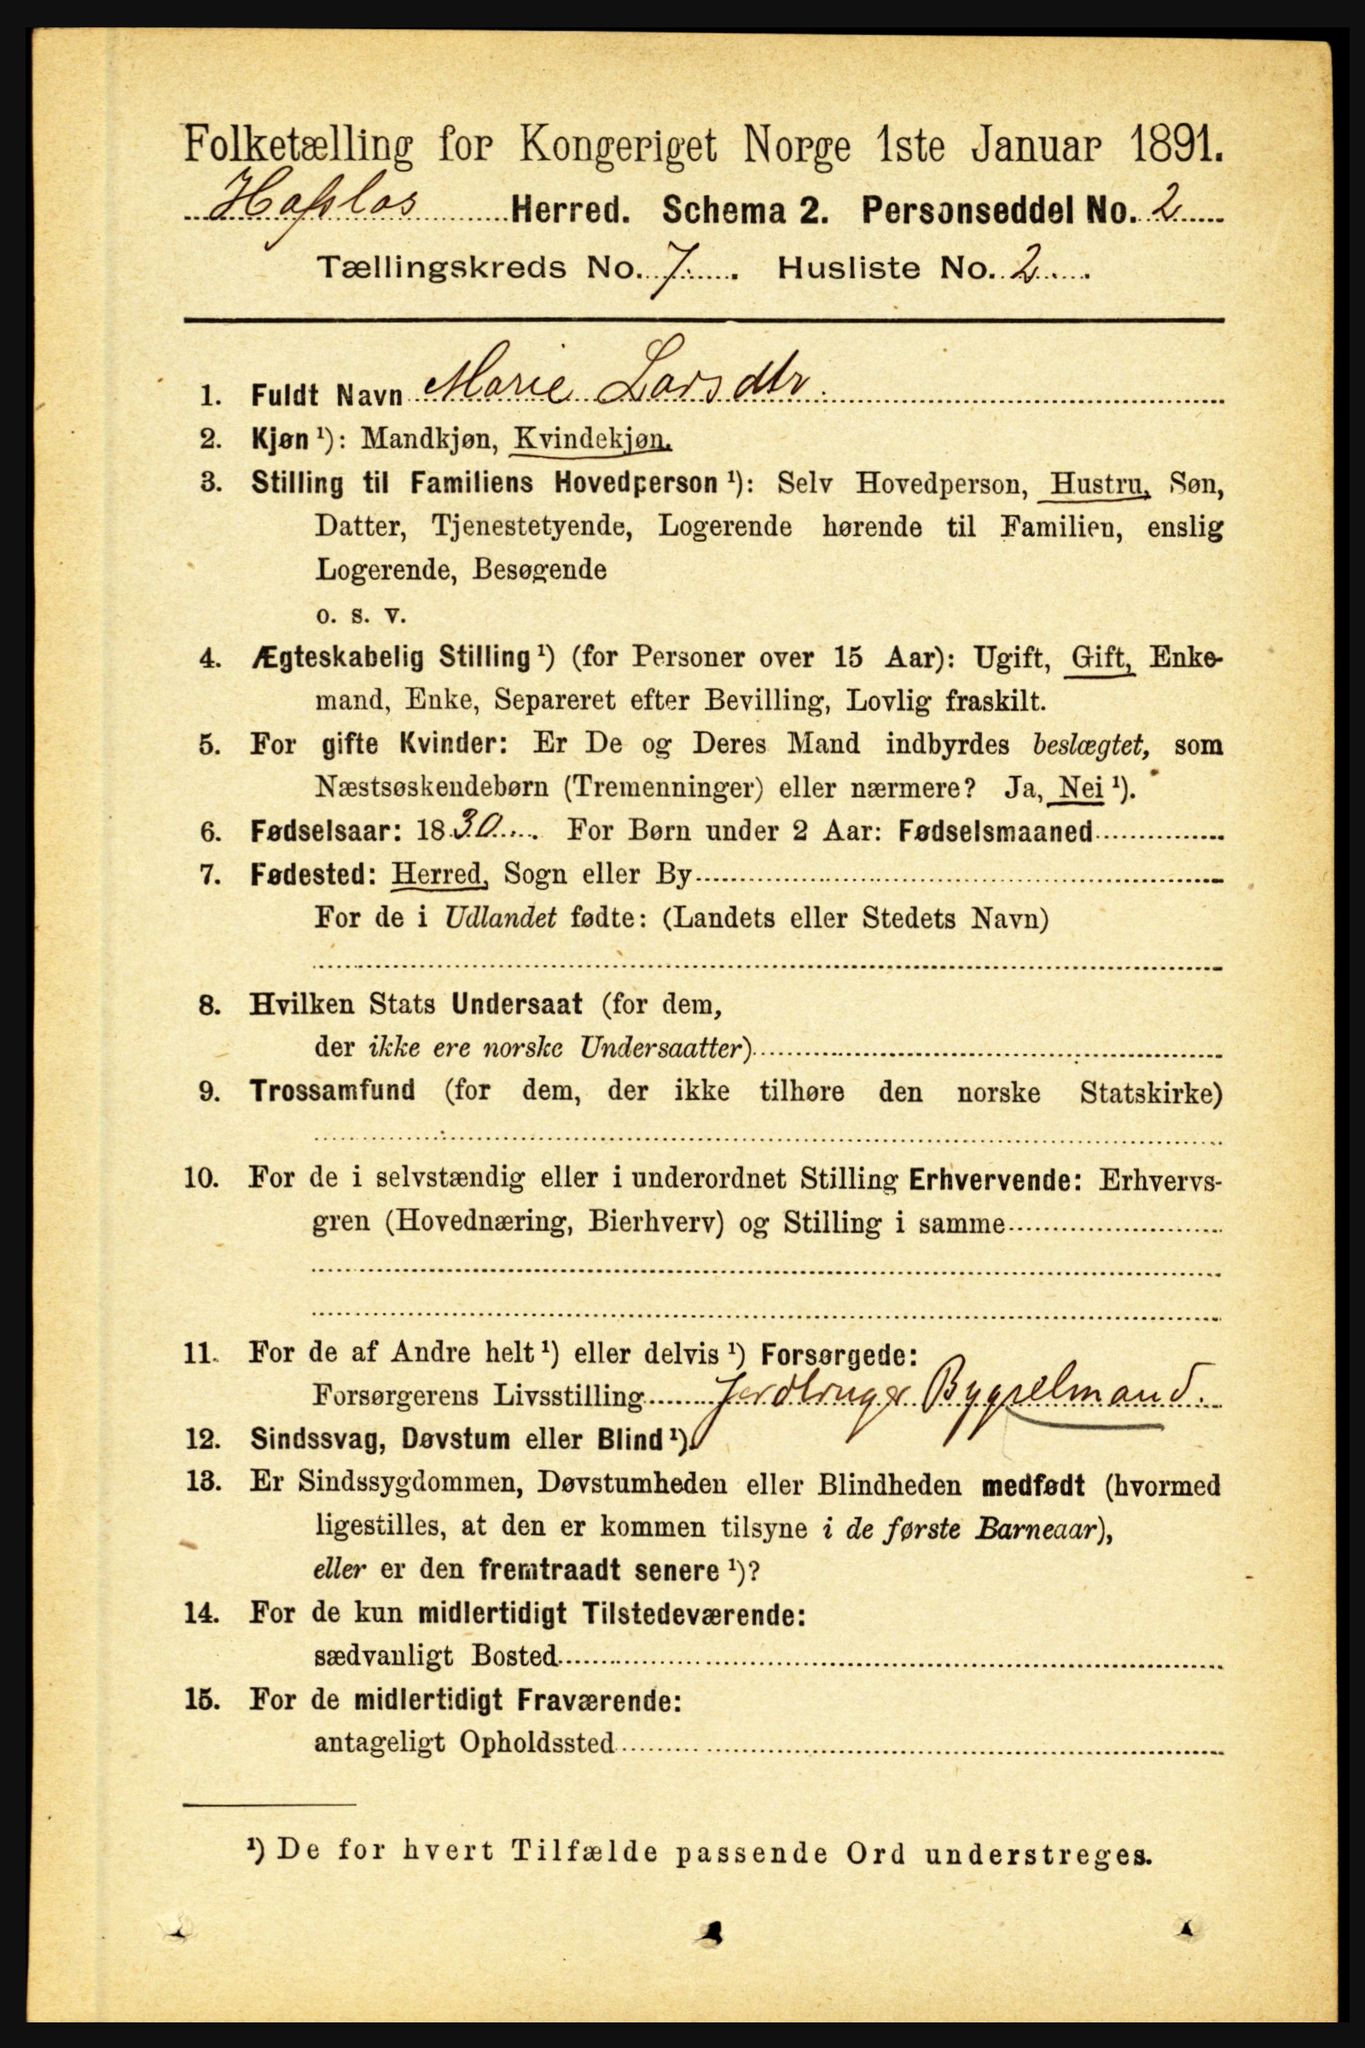 Folketælling for Kongeriget Norge 1ste Januar 1891.
Hafslo Herred. Schema 2. Personseddel No. 2
Tællingskreds No. 7. Husliste No. 2.
1. Fuldt Navn Marie Larsdtr.
2. Kjøn ¹): Mandkjøn, Kvindekjøn.
3. Stilling til Familiens Hovedperson ¹): Selv Hovedperson, Hustru, Søn,
Datter, Tjenestetyende, Logerende hørende til Familien, enslig
Logerende, Besøgende
o. s. v.
4. Ægteskabelig Stilling ¹) (for Personer over 15 Aar): Ugift, Gift, Enke-
mand, Enke, Separeret efter Bevilling, Lovlig fraskilt.
5. For gifte Kvinder: Er De og Deres Mand indbyrdes beslægtet, som
Næstsøskendebørn (Tremenninger) eller nærmere? Ja, Nei ¹).
6. Fødselsaar: 1830. For Børn under 2 Aar: Fødselsmaaned
7. Fødested: Herred, Sogn eller By
For de i Udlandet fødte: (Landets eller Stedets Navn)
8. Hvilken Stats Undersaat (for dem,
der ikke ere norske Undersaatter)
9. Trossamfund (for dem, der ikke tilhøre den norske Statskirke)
10. For de i selvstændig eller i underordnet Stilling Erhvervende: Erhvervs-
gren (Hovednæring, Bierhverv) og Stilling i samme
11. For de af Andre helt ¹) eller delvis ¹) Forsørgede:
Forsørgerens Livsstilling Jordbruger Bygselmand.
12. Sindssvag, Døvstum eller Blind ¹).
13. Er Sindssygdommen, Døvstumheden eller Blindheden medfødt (hvormed
ligestilles, at den er kommen tilsyne i de første Barneaar),
eller er den fremtraadt senere ¹)?
14. For de kun midlertidigt Tilstedeværende:
sædvanligt Bosted
15. For de midlertidigt Fraværende:
antageligt Opholdssted
¹) De for hvert Tilfælde passende Ord understreges.